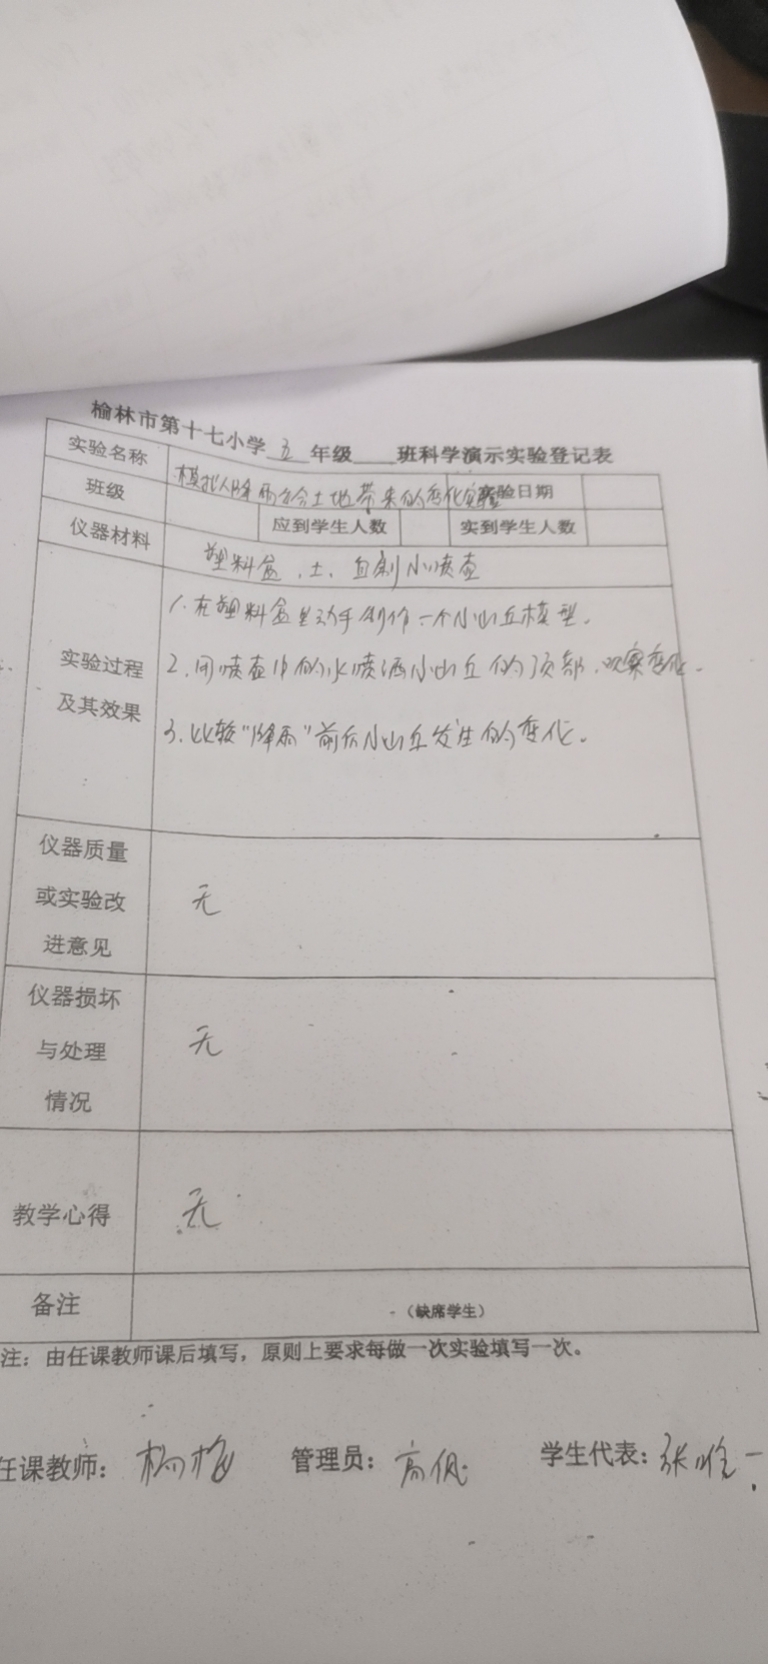 榆林市第十七小学 五 年级 班科学演示实验登记表
实验名称 模拟降雨会给土地带来的变化实验 实验日期
班级 应到学生人数 实到学生人数
仪器材料 塑料盒、土、自制小喷壶
实验过程及其效果
1.在塑料盒里动手制作一个小山丘模型。
2.用喷壶中的水喷洒小山丘的顶部,观察变化。
3.比较“降雨”前后小山丘发生的变化。
仪器质量
或实验改
进意见
无
仪器损坏
与处理
情况
无
教学心得 无
备注 (缺席学生)
注:由任课教师课后填写,原则上要求每做一次实验填写一次。
任课教师:杨梅 管理员:高 学生代表:张唯一